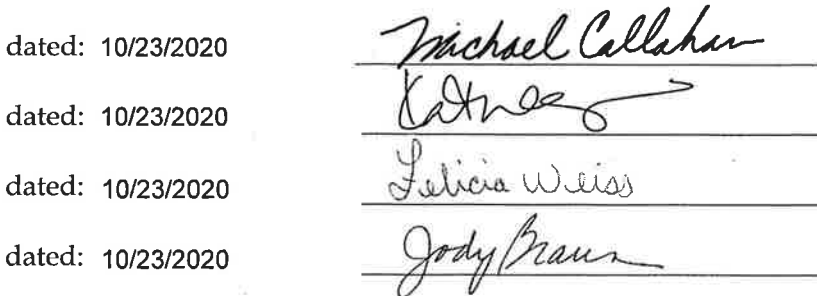 dated: 10/23/2020 Michael Callahan
dated: 10/23/2020
dated: 10/23/2020 Felicia Weiss
dated: 10/23/2020 Jody Braun